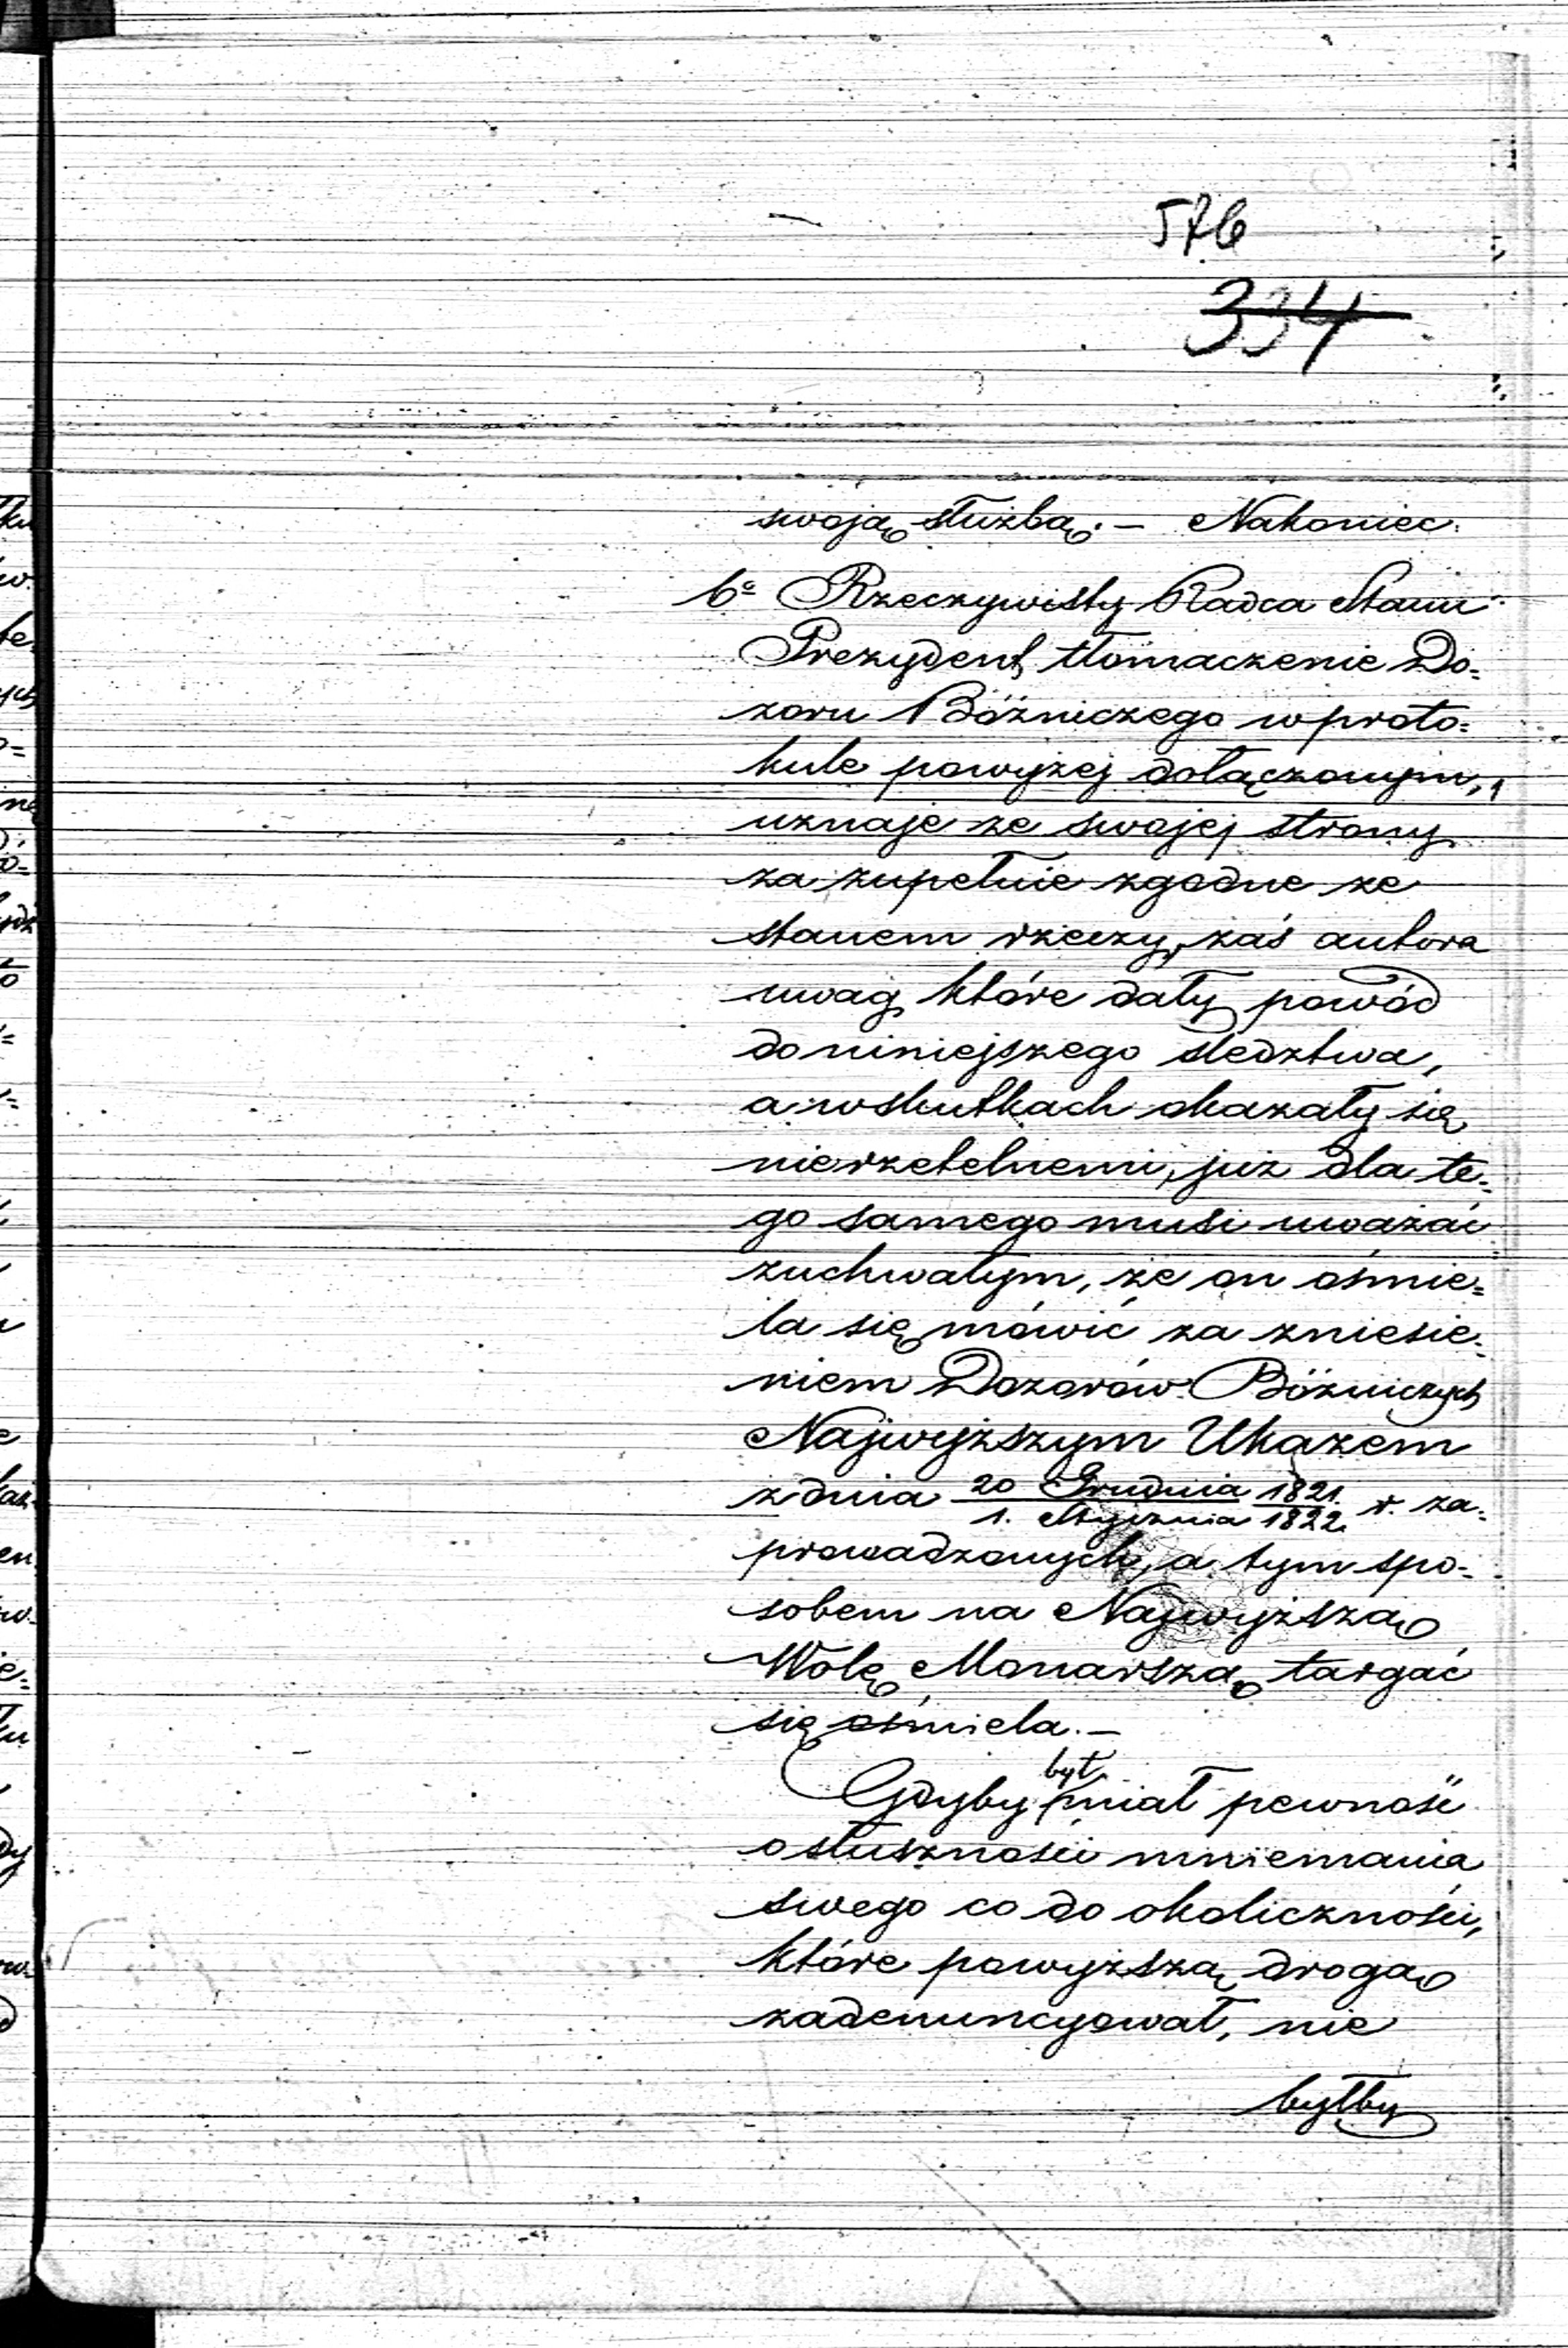 576
334
swoją służbą. – Nakoniec.
6° Rzeczywisty Radca Stanu
Prezydent, tłomaczenie Do=
zoru Bóżniczego w proto=
kule powyżej dołączonym,
uznaje ze swojej strony
za zupełnie zgodne ze
stanem rzeczy, zaś autora
uwag, które dały powód
do niniejszego śledztwa,
a w skutkach okazały się
nierzetelnemi, już dla te=
go samego musi uważać
zuchwałym, że on ośmie=
la się mówić za zniesie=
niem Dozorów Bóżniczych
Najwyższym Ukazem
z dnia 20 Grudnia 1821. / 1. Stycznia 1822. r. za=
prowadzonych, a tym spo=
sobem na Najwyższą
Wolę Monarszą targać
się ośmiela. –
Gdyby był miał pewność
o słuszności mniemania
swego co do okoliczności,
które powyższą drogą
zadenuncyował, nie
byłby